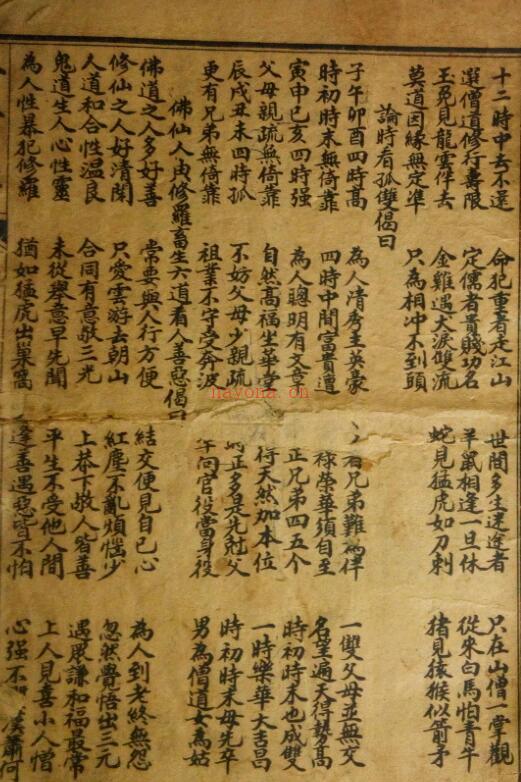 十二時中去不還 命犯重者走江山 世間多生迷途者 只在山僧一掌觀
選僧道修行壽限 定儒者貴賤功名 羊鼠相逢一旦休 從來白馬怕青牛
玉兔見龍雲伴去 金雞遇犬淚雙流 蛇見猛虎如刀刺 猪見猿猴似箭矛
莫道因緣無定準 只為相冲不到頭
論時看孤雙偈曰
子午卯酉四時高 為人清秀主英豪 若兄弟難為伴 一雙父母並無交
時初時末無倚靠 四時中間富貴遭 祿榮華須自至 名望遍天得勢高
寅申巳亥四時强 為人聰明有文章 正兄弟四五个 時初時末也成雙
父母親疏無倚靠 自然高福坐華堂 得天然加本位 一時榮華大吉昌
辰戌丑未四時孤 不妨父母少親疏 正多是先尅父 時初時末母先卒
更有兄弟無倚靠 祖業不守受奔波 間官役當身役 男為僧道女為姑
佛仙人由修羅畜生六道看人善惡偈曰
佛道之人多好善 常要與人行方便 結交便見自己心 為人到老終無怨
修仙之人好清閑 只愛雲游去朝山 紅塵不亂煩惱少 忽然覺悟出三元
人道和合性温良 合同有意敬三光 上恭下敬人皆善 遇眾謙和福最常
鬼道生人心性靈 未從舉意早先聞 平生不受他人間 上人見喜小人憎
為人性暴犯修羅 猶如猛虎出巢窩 逢善遇惡皆不怕 心强不漢蕭何
havona.cn